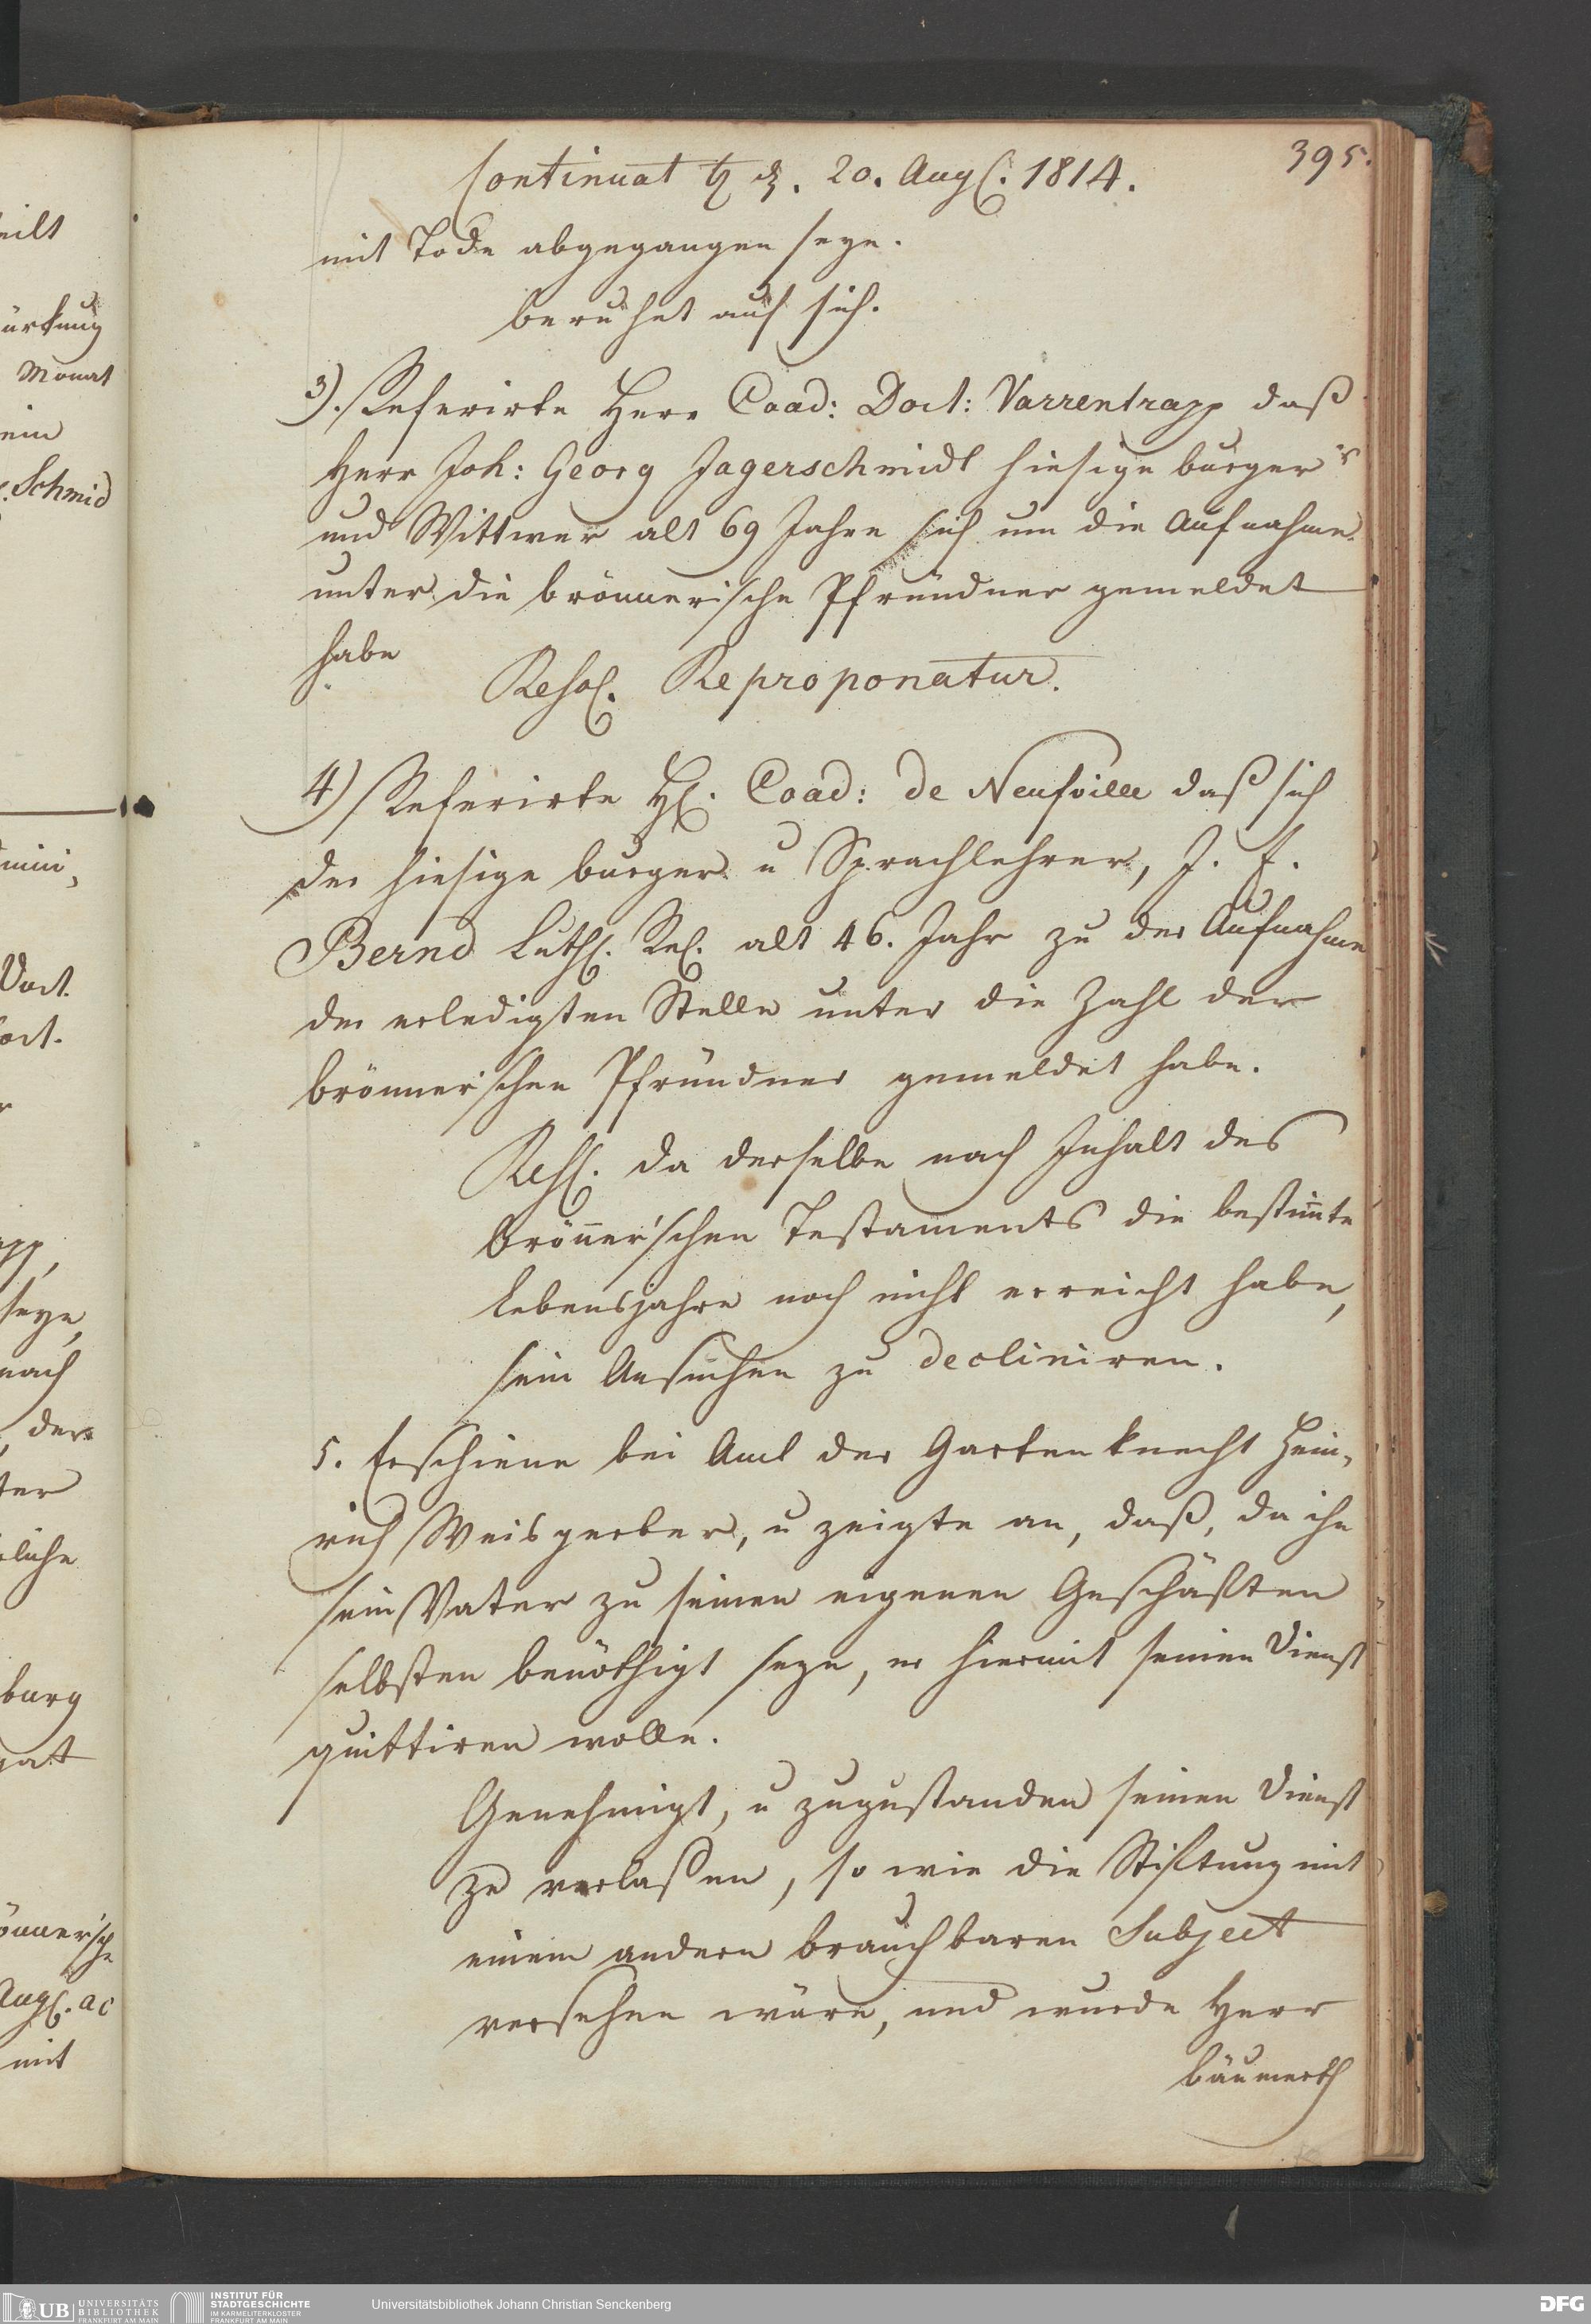 eilt
ürkung
Monat
ein
Schmid
Doct.
seye,
nach
der
burg
önner'sche
Augl. ac
mit
395.
Continuat ꝑ d. 20. Augl. 1814.
mit Tode abgegangen seye.
beruhet auf sich.
3). Referirte Herr Coad: Doct: Varrentrapp daß
Herr Joh: Georg Jagerschmidt hiesige burger
und Wittwer alt 69 Jahre sich um die Aufnahme
unter die brönnerische Pfründner gemeldet
habe
Resol. Reproponatur.
4) Referirte Hl. Coad: de Neufville daß sich
der hiesige burger u Sprachlehrer, J. F.
Bernd Luthl. Rel. alt 46. Jahr zu der Aufnahme
der erledigten Stelle unter die Zahl der
brönner'schen Pfründner gemeldet habe.
Resl. da derselbe nach Inhalt des
brönner'schen Testaments die bestimte
Lebensjahre noch nicht erreicht habe,
sein Ansuchen zu decliniren.
5. Erschiene bei Amt der Gartenknecht Hein,
rich Weisgerber, u zeigte an, daß, da ihn
sein Vater zu seinen eigenen Geschäften
selbsten benöthigt seye, er hiermit seinen Dienst
quittiren wolle.
Genehmigt, u zugestanden seinen Dienst
zu verlaßen, so wie die Stiftung mit
einem andern brauchbaren Subject
versehen wäre, und wurde Herr
bäumerth
UB UNIVERSITÄTS
BIBLIOTHEK
FRANKFURT AM MAIN
INSTITUT FÜR
STADTGESCHICHTE
IM KARMELITERKLOSTER
FRANKFURT AM MAIN
Universitätsbibliothek Johann Christian Senckenberg
DFG